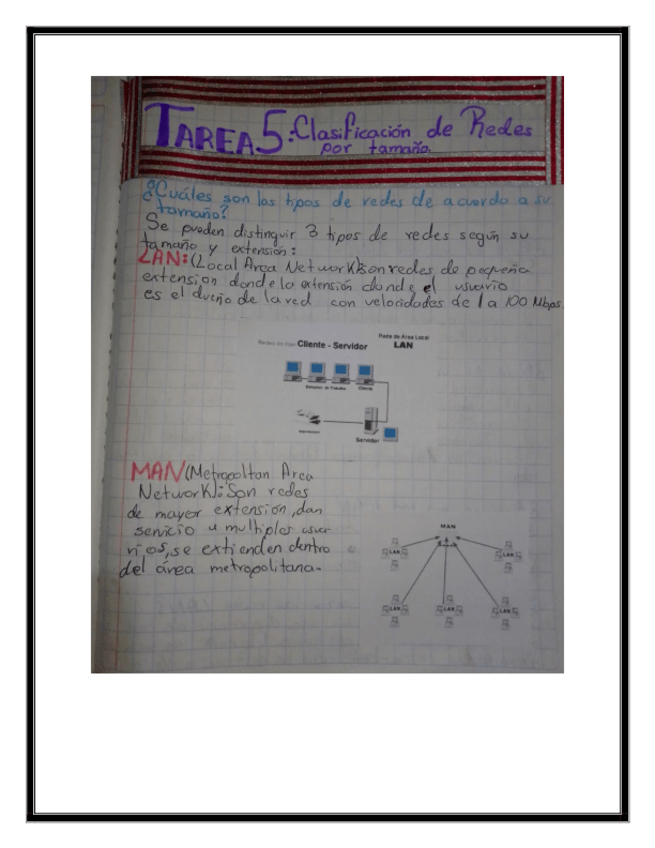 TAREA 5: Clasificación de Redes
por tamaño.
¿Cuáles son los tipos de redes de acuerdo a su
tamaño?
Se pueden distinguir 3 tipos de redes según su
tamaño y extensión:
LAN: (Local Area Network): son redes de pequeña
extension donde la extensión donde el usuario
es el dueño de la red con velocidades de 1 a 100 Mbps.
Cliente - Servidor
Rede de Área Local
LAN
Estações de Trabalho
Cliente
Servidor
MAN (Metropoltan Area
Network): Son redes
de mayor extensión, dan
servicio a multiples usua-
rios, se extienden dentro
del área metropolitana.
MAN
LAN
LAN
LAN
LAN
LAN